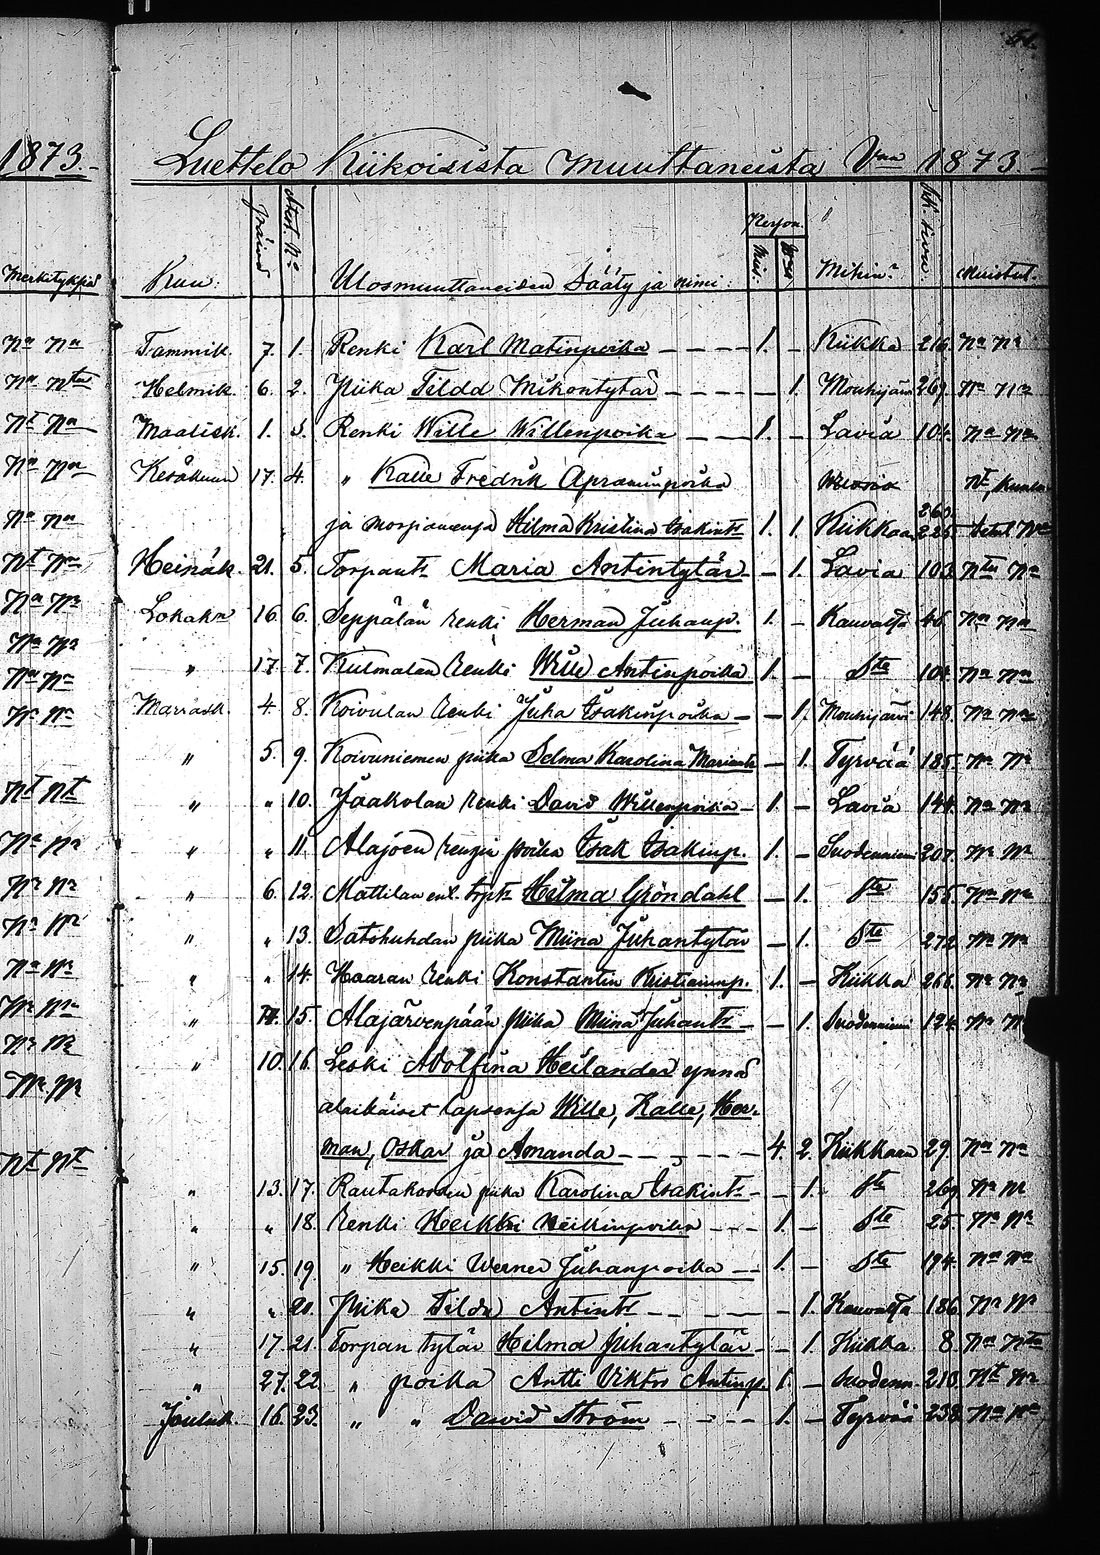 1873.
Luettelo Kiikoisista muuttaneista Vnna 1873.
Merkityksiä
Kuu: Päivä Attest. No Ulosmuuttaneiden Sääty ja nimi: Person. Mihin? Muistut.
Tammik. 7. 1. Renki Karl Matinpoika 1. – Kiikka 216. Na Na
Helmik. 6. 2. Piika Tilda Mikontytär – 1. Mouhijärvi 269. Na Na
Maalisk. 1. 3. Renki Wille Willenpoika 1. – Lavia 104. Na Na
Kesäkuun 17. 4. " Kalle Fredrik Apraminpoika
ja morsiamensa Hilma Kristina Isakint. 1. 1. Kiikkaan 260. 225.
Heinäk. 21. 5. Torpant. Maria Antintytär – 1. Lavia 103. Nta Na
Lokak. 16. 6. Seppälän renki Herman Juhanp. 1. – Kauvatsa 46. Na Na
" 17. 7. Kulmalan Renki Wille Antinpoika 1. – Dte 104. Na Na
Marrask. 4. 8. Koivulan Renki Juha Isakinpoika – 1. Mouhijärvi 148. Na Na
" 5. 9. Koivuniemen piika Selma Karolina Mariant. 1. Tyrvää 185. Na Na
" " 10. Jaakolan Renki David Willenpoika 1. – Lavia 144. Na Na
" " 11. Alajoen rengin poika Isak Isakinp. 1. – Suodenniemi 207. Na Na
" 6. 12. Mattilan ent. trpt. Hilma Gröndahl – 1. Dte 155. Na Na
" " 13. Satohuhdan piika Miina Juhantytär – 1. Dte 272 Na Na
" " 14. Haaran Renki Konstantin Kristianinp. 1. – Kiikka 266. Na Na
" 15. Alajärvenpään piika Miina Juhant. – 1. Suodenniemi 124. Na
" 10. 16. Leski Adolfina Heilander ynnä
alaikäiset lapsensa Wille, Kalle, Her-
man, Oskar ja Amanda 4. 2. Kiikkaan 29. Na Na
" 13. 17. Rautakosken piika Karolina Isakint. 1. Dte 269. Na Na
" " 18. Renki Heikki Heikinpoika 1. – Dte 25. Na Na
" 15. 19. " Heikki Werner Juhanpoika 1. – Dte 194. Na Na
" " 20. Piika Tilda Antint. 1. Kauvatsa 186. Na Na
" 17. 21. Torpan tytär Hilma Juhantytär 1. Kiikka 8. Na Nta
" 27. 22. " poika Antti Viktor Antinp. 1. – Suodenn. 213. Nt Na
Jouluk. 16. 23. " " David Ström 1. – Tyrvää 238. Na Na